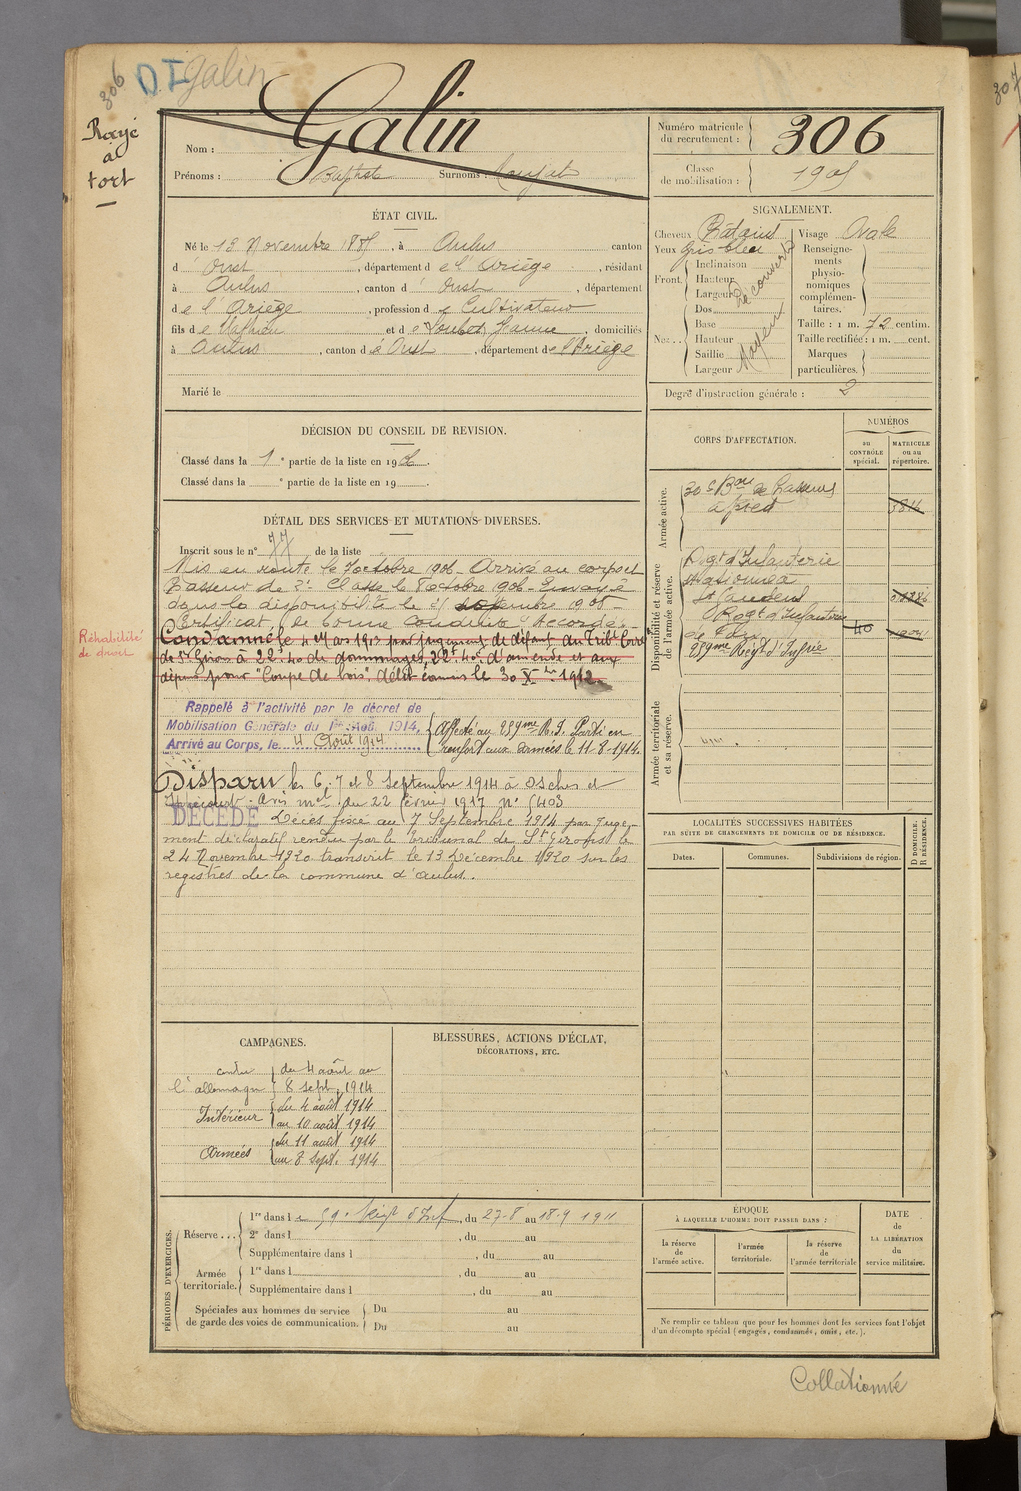 306
D.I
Galin
Rayé
à
tort
Nom : Galin
Prénoms : Baptiste Surnoms :
Numéro matricule
du recrutement : 306
Classe
de mobilisation : 1905
ÉTAT CIVIL.
Né le Novembre , à Aulus canton
d' Oust , département de l'Ariège , résidant
à Aulus , canton d' Oust , département
de l'Ariège , profession de Cultivateur
fils de et de Jeanne , domiciliés
à Aulus , canton d'Oust , département de l'Ariège
Marié le
SIGNALEMENT.
Cheveux Châtains
Yeux gris bleu
Front.
Inclinaison
Hauteur
Largeur
découvert
Nez..
Dos
Base
Hauteur
Saillie
Largeur
Moyen
Visage Ovale
Renseigne-
ments
physio-
nomiques
complémen-
taires.
Taille : 1 m. 72 centim.
Taille rectifiée : 1 m. cent.
Marques
particulières.
Degré d'instruction générale : 2
DÉCISION DU CONSEIL DE REVISION.
Classé dans la 1e partie de la liste en 190
Classé dans la e partie de la liste en 19
CORPS D'AFFECTATION.
NUMÉROS
au
CONTRÔLE
spécial.
MATRICULE
ou au
répertoire.
Armée active.
30e Bon de Chasseurs
à pied
Disponibilité et réserve
de l'armée active.
Regt d'Infanterie
stationné à
St Gaudens
Regt d'Infanterie
de
40
259me Régt d'Infrie
Armée territoriale
et sa réserve.
DÉTAIL DES SERVICES ET MUTATIONS DIVERSES.
Inscrit sous le n° 77 de la liste
Mis en route le 7 octobre 1906. Arrivé au corps et
Chasseur de 2e Classe le 8 octobre 1906. Envoyé
dans la disponibilité le 1908
Certificat de bonne conduite "Accordé"
Réhabilité
de droit
Condamné le 4 Mars 1913 par jugement de défaut du Trib. Corel
de St Girons à 22f 40 de dommages, 22f 40c d'amende et aux
dépens pour "Coupe de bois", délit commis le 30 Xbre 1912.
Rappelé à l'activité par le décret de
Mobilisation Générale du 1er Août 1914.
Arrivé au Corps, le 4 Août 1914
Affecté au 259me R.I. Parti en
renfort aux armées le 11-8-1914.
Disparu les 6, 7 et 8 Septembre 1914 à Osches et
Ippécourt. Avis mel du 22 février 1917 N°
DÉCÉDÉ
Décès fixé au 7 Septembre 1914 par juge-
ment déclaratif rendu par le tribunal de St Girons le
24 Novembre 1920 transcrit le 13 Décembre 1920 sur les
registres de la commune d'Aulus.
LOCALITÉS SUCCESSIVES HABITÉES
PAR SUITE DE CHANGEMENTS DE DOMICILE OU DE RÉSIDENCE.
Dates.
Communes.
Subdivisions de région.
D DOMICILE.
R RÉSIDENCE.
CAMPAGNES.
contre
l'allemagne
du 4 août au
8 sept. 1914
Intérieur
du 4 août 1914
au 10 août 1914
Armées
du 11 août 1914
au 8 Sept. 1914
BLESSURES, ACTIONS D'ÉCLAT,
DÉCORATIONS, ETC.
PÉRIODES D'EXERCICES.
Réserve ...
1re dans le 59e Régt d'Inf , du 27-8 au 18-9 1911
2e dans l , du au
Supplémentaire dans l , du au
Armée
territoriale.
1re dans l , du au
Supplémentaire dans l , du au
Spéciales aux hommes du service
de garde des voies de communication.
Du au
Du au
ÉPOQUE
À LAQUELLE L'HOMME DOIT PASSER DANS :
la réserve
de
l'armée active.
l'armée
territoriale.
la réserve
de
l'armée territoriale
DATE
de
LA LIBÉRATION
du
service militaire.
Ne remplir ce tableau que pour les hommes dont les services font l'objet
d'un décompte spécial (engagés, condamnés, omis, etc.).
Collationné
307